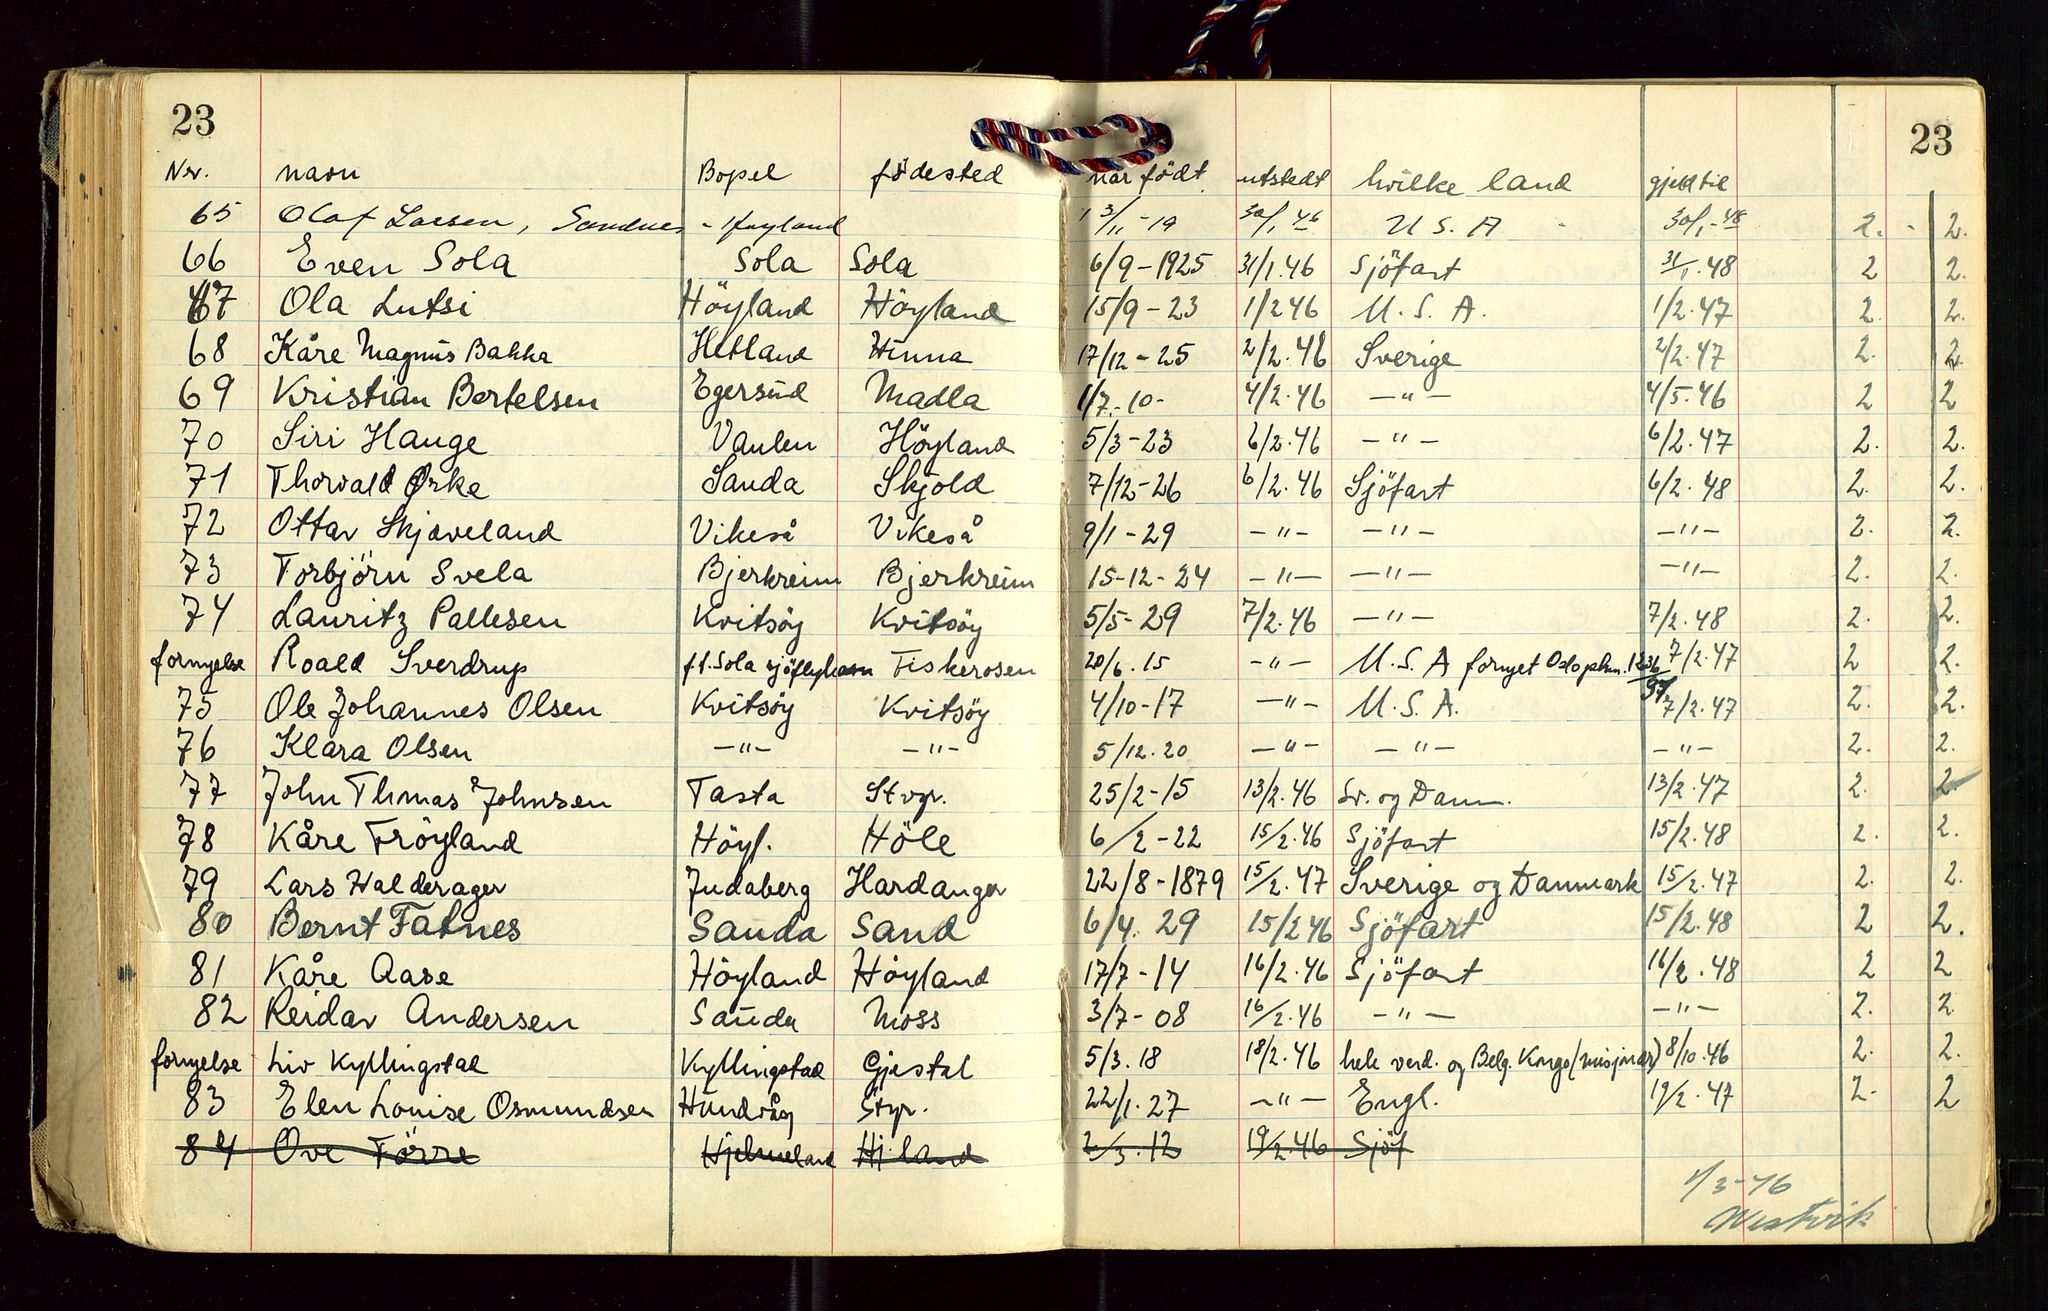 23 23
Nr. navn Bopel födested når födt utstedt hvilke land gjeld til
65 Olaf Larsen, Sandnes - Höyland 13/11-19 30/1 46 U S. A 30/1-48 2. 2.
66 Even Sola Sola Sola 6/9-1925 31/1.46 Sjöfart 31/1.48 2 2.
67 Ola Lutsi Höyland Höyland 15/9-23 1/2 46 U. S. A. 1/2.47 2. 2.
68 Kåre Magnus Bakka Hetland Hinna 17/12-25 2/2.46 Sverige 2/2.47 2. 2.
69 Kristian Bertelsen Egersund Madla 1/7.-10- 4/2.46 —"— 4/5.46 2 2
70 Siri Hauge Vaulen Höyland 5/3-23 6/2.46 —"— 6/2.47 2. 2.
71 Thorvald Ørke Sauda Skjold 7/12-26 6/2.46 Sjöfart 6/2.48 2. 2.
72 Ottar Skjæveland Vikeså Vikeså 9/1-29 —"— —"— —"— 2. 2.
73 Torbjörn Svela Bjerkreim Bjerkreim 15-12-24 —"— —"— —"— 2. 2.
74 Lauritz Pallesen Kvitsöy Kvitsöy 5/5-29 7/2.46 —"— 7/2.48 2. 2.
fornyelse Roald Sverdrup f.t. Sola sjöflyhavn Fiskerosen 20/6.15 —"— U. S. A fornyet Oslo pkm. 1236/97 7/2.47 2 2.
75 Ole Johannes Olsen Kvitsöy Kvitsöy 4/10-17 —"— U. S. A. 7/2.47 2. 2.
76 Klara Olsen —"— —"— 5/12.20 —"— —"— —"— 2. 2.
77 John Thmas Johnsen Tasta Stvgr. 25/2-15 13/2.46 Sv. og Danm. 13/2.47 2. 2
78 Kåre Fröyland Höyl. Höle 6/2-22 15/2.46 Sjöfart 15/2.48 2. 2.
79 Lars Halderager Judaberg Hardanger 22/8-1879 15/2.47 Sverige og Danmark 15/2.47 2. 2.
80 Bernt Fatnes Sauda Sand 6/4. 29 15/2 46 Sjöfart 15/2.48 2 2.
81 Kåre Aase Höyland Höyland 17/7-14 16/2.46 Sjöfart 16/2.48 2 2
82 Reidar Andersen Sauda Moss 3/7-08 16/2.46 —"— —"— 2. 2
fornyelse Liv Kyllingstad Kyllingstad Gjestal 5/3.18 18/2.46 hele verd. og Belg. Kongo (misjonær) 8/10.46 2. 2.
83 Elen Louise Osmundsen Hundvåg Stvgr. 22/1.27 —"— Engl. 19/2.47 2- 2
84 Ove Törre Hjelmeland Hj.land 2/3.12 19/2.46 Sjöf
1/3-46
Westvik